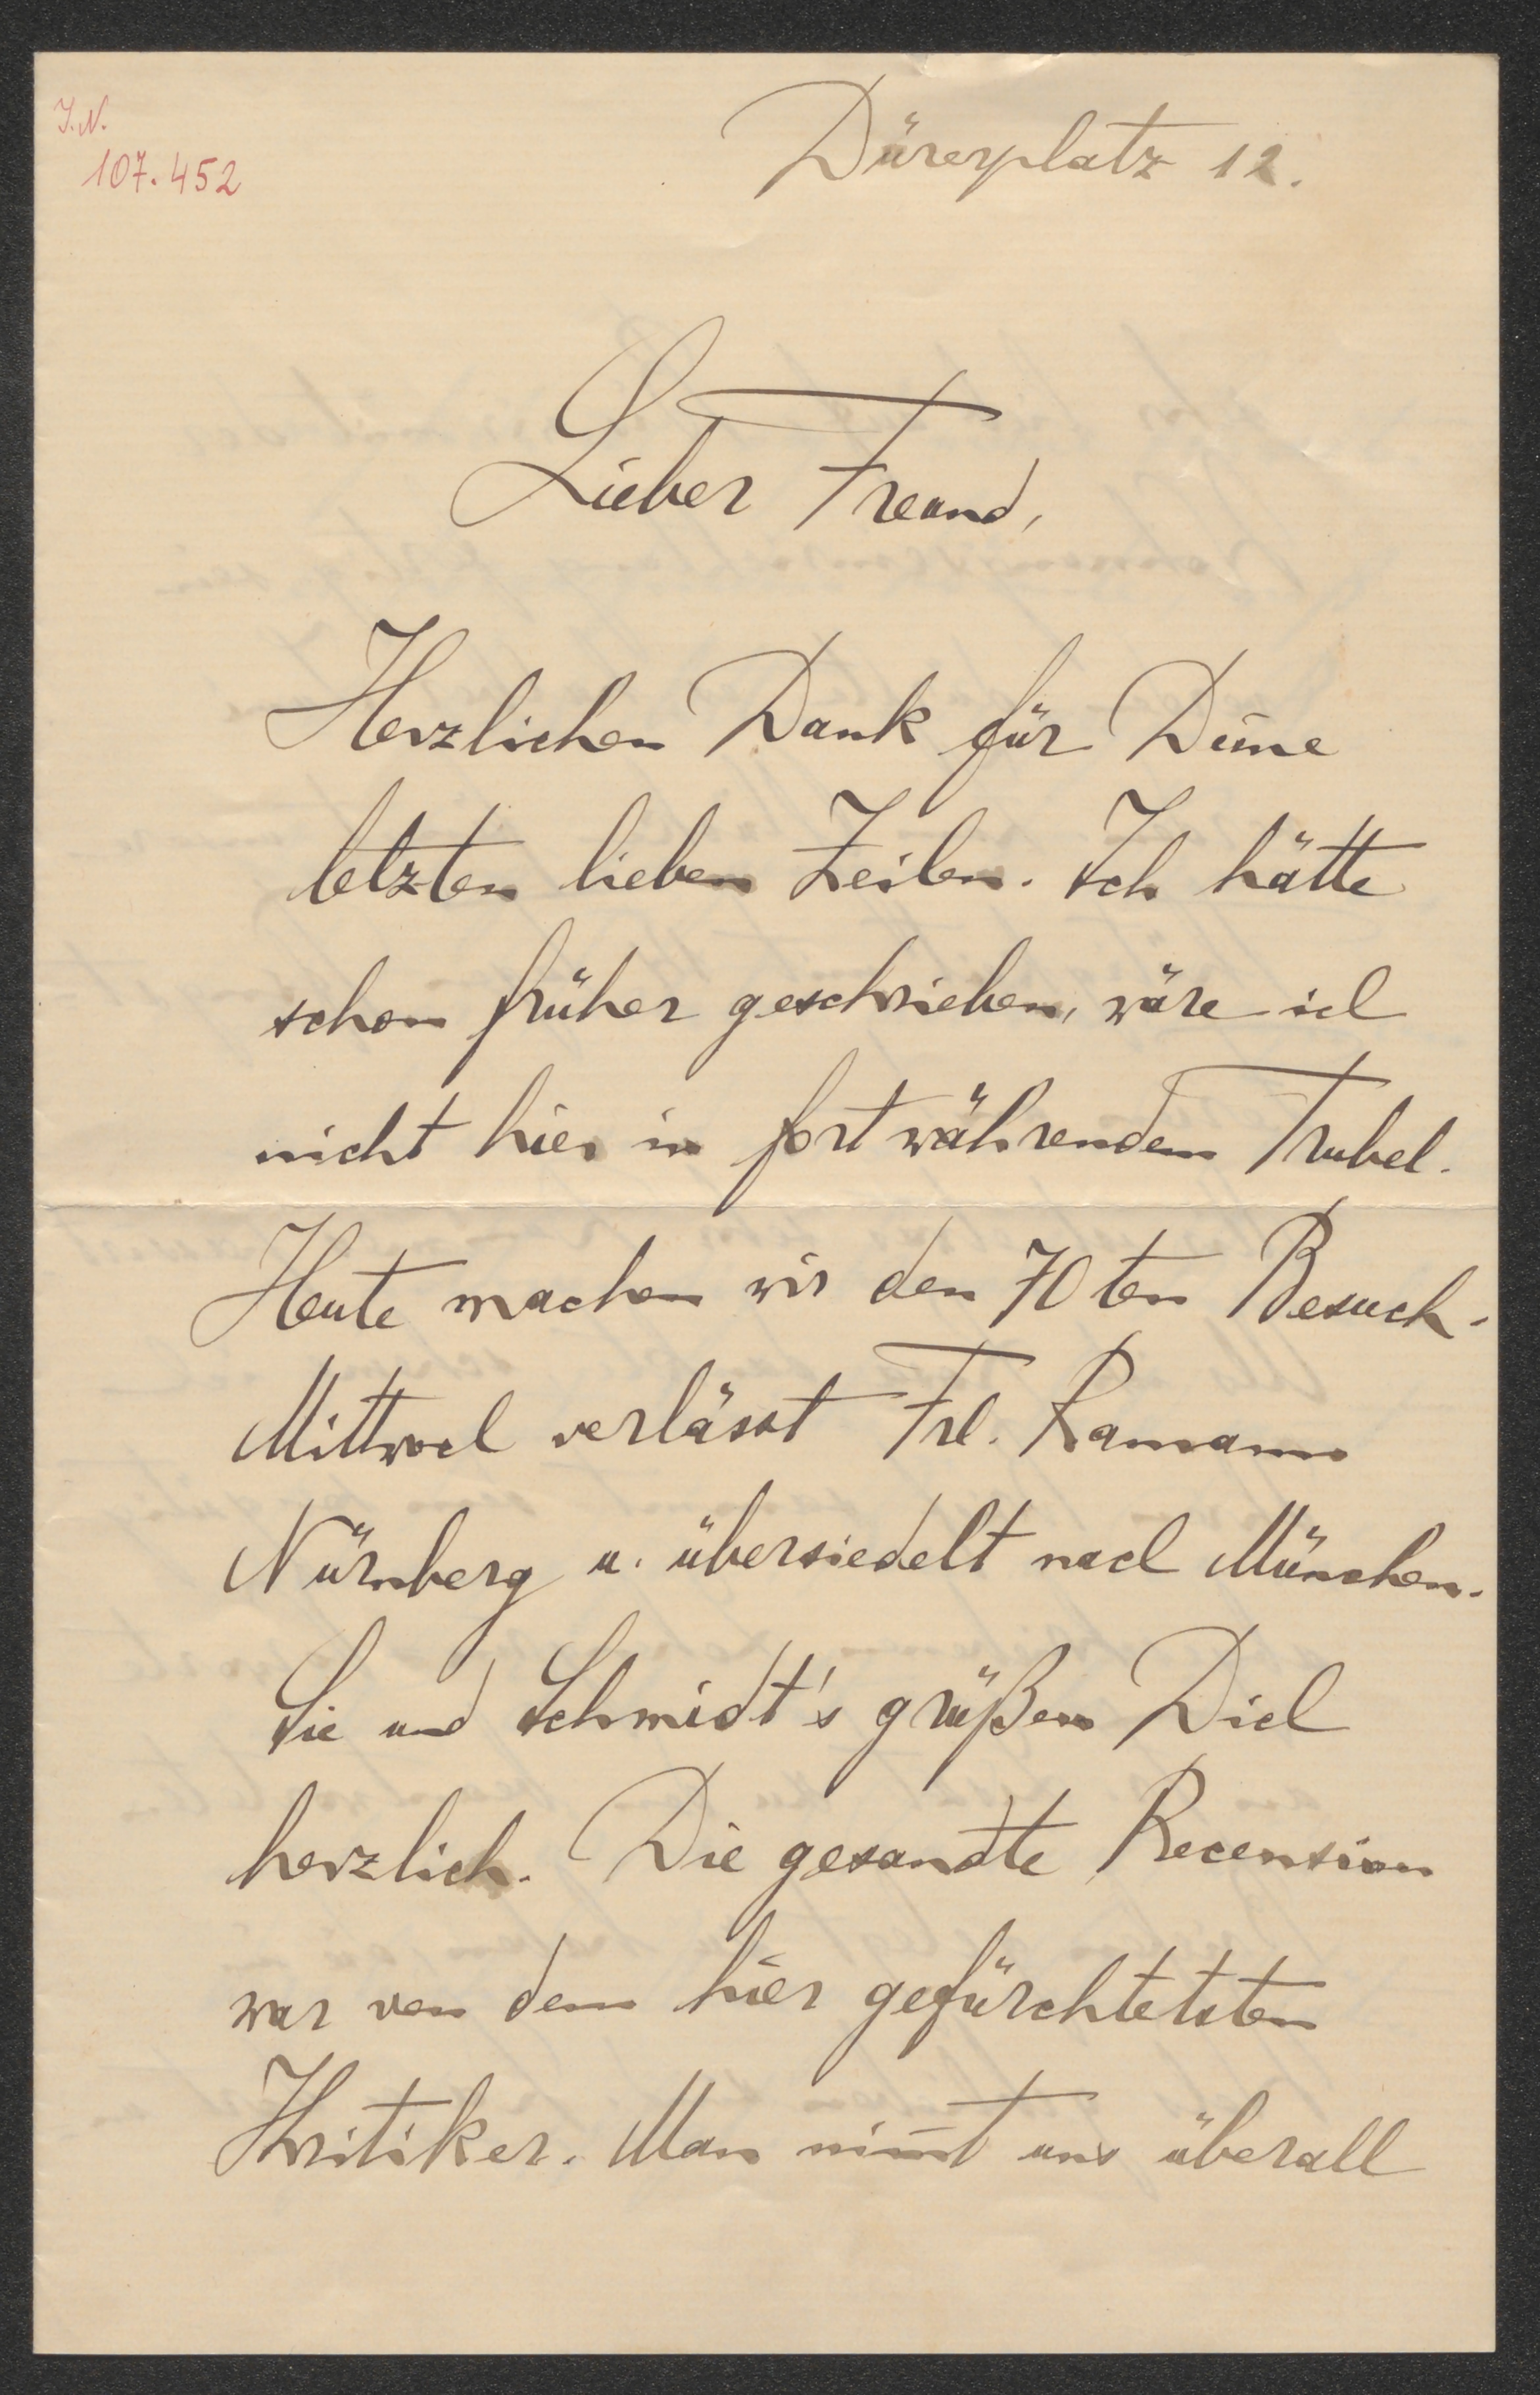 I.N.
107.452
Dürerplatz 12.
Lieber Freund,
Herzlichen Dank für Deine
letzten lieben Zeilen. Ich hätte
schon früher geschrieben, wäre ich
nicht hier in fortwährendem Trubel.
Heute machen wir den 70ten Besuch.
Mittwoch verlässt Frl. Ramann
Nürnberg u. übersiedelt nach München.
Sie und Schmidt's grüßen Dich
herzlich. Die gesandte Recension
war von dem hier gefürchtetsten
Kritiker. Man nim̅t uns überall